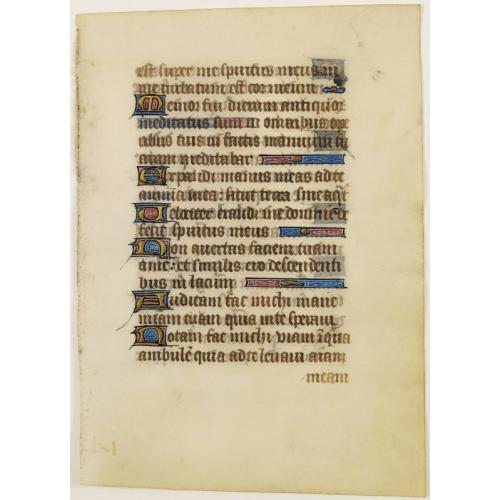 est super me spiritus meus in
me turbatum est cor meum
Memor fui dierum antiquor
meditatus sum in omnibus ope
ribus tuis in factis manuum tu
arum meditabar
Expandi manus meas ad te
anima mea sicut terra sine aqua
Velociter exaudi me domine de
fecit spiritus meus
Non auertas faciem tuam
a me et similis ero descendenti
bus in lacum
Auditam fac michi mane
miam tuam quia in te speraui
Notam fac michi viam in qua
ambulem quia ad te leuaui aiam
meam